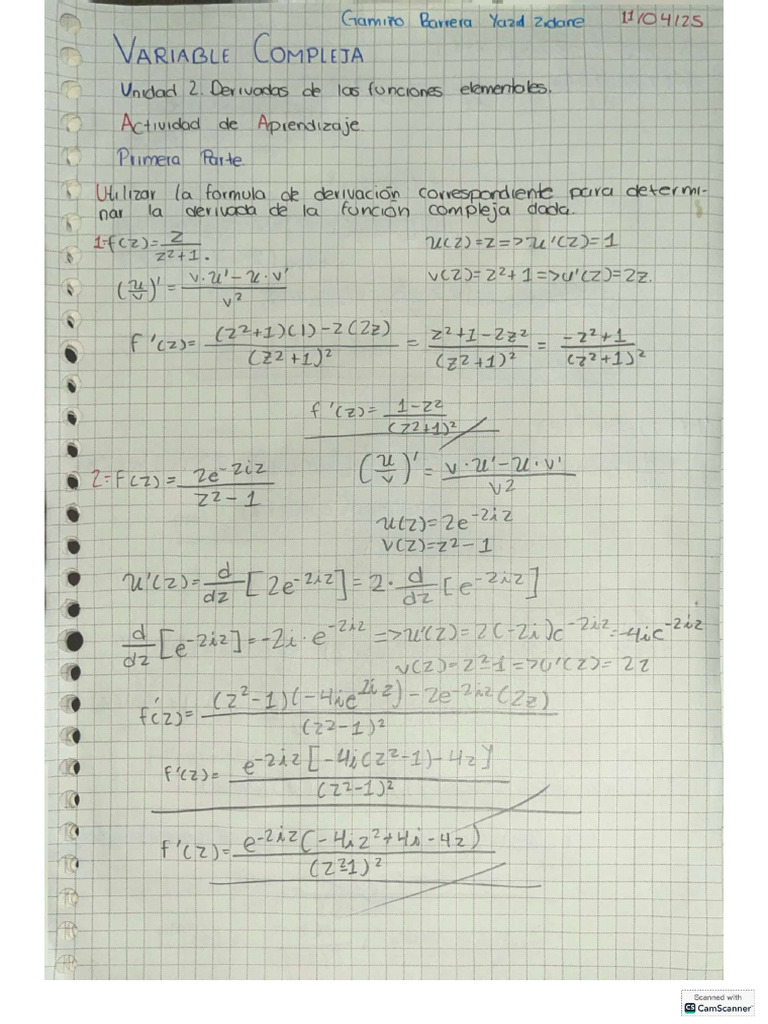 Gamiño Barrera Yazd Zidane 11/04/25
VARIABLE COMPLEJA
Unidad 2. Derivadas de las funciones elementales.
Actividad de Aprendizaje.
Primera Parte
Utilizar la formula de derivación correspondiente para determi-
nar la derivada de la función compleja dada.
1-f(z)=z/(z²+1). u(z)=z=>u'(z)=1
(u/v)'=(v·u'-u·v')/v² v(z)=z²+1=>v'(z)=2z.
f'(z)=((z²+1)(1)-z(2z))/(z²+1)²=(z²+1-2z²)/(z²+1)²=(-z²+1)/(z²+1)²
f'(z)=(1-z²)/(z²+1)²
2=f(z)=2e^-2iz/(z²-1) (u/v)'=(v·u'-u·v')/v²
u(z)=2e^-2iz
v(z)=z²-1
u'(z)=d/dz[2e^-2iz]=2·d/dz[e^-2iz]
d/dz[e^-2iz]=-2i·e^-2iz=>u'(z)=2(-2i)e^-2iz=-4ie^-2iz
v(z)=z²-1=>v'(z)=2z
f'(z)=((z²-1)(-4ie^2iz)-2e^-2iz(2z))/(z²-1)²
f'(z)=e^-2iz[-4i(z²-1)-4z]/(z²-1)²
f'(z)=e^-2iz(-4iz²+4i-4z)/(z²-1)²
Scanned with
CS CamScanner